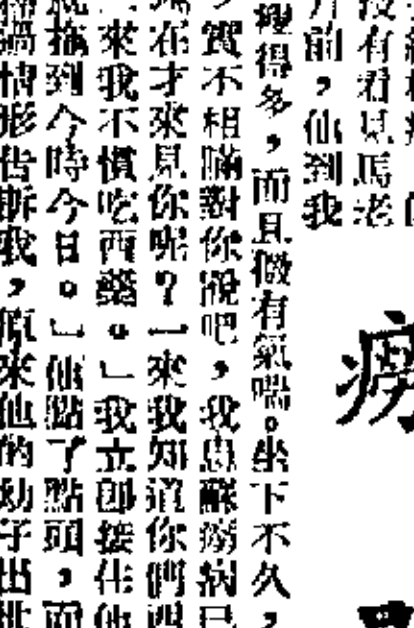 沒有看見馬老
前，他到我
癆
理得多，而且微有氣喘。坐下不久，
實不相瞞對你說吧，我患肺癆病已
在才來見你呢？一來我知道你們西
來我不慣吃西藥。」我立即接住他
拖到今時今日。」他點了點頭，而
情形告訴我，原來他的幼子出世